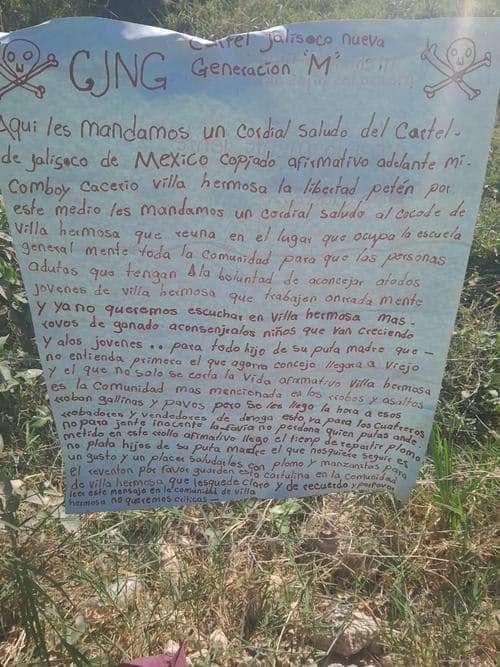 CJNG Cartel jalisoco nueva
Generacion "M"
Aqui les mandamos un cordial saludo del Cartel-
de jalisoco de Mexico copiado afirmativo adelante mi-
Comboy Cacerio villa hermosa la libertad petén por
este medio les mandamos un cordial saludo al cocode de
villa hermosa que reuna en el lugar que ocupa la escuela
general mente toda la comunidad para que las personas
adutas que tengan Ala boluntad de aconcejar atodos
jovenes de villa hermosa que trabajen onrada mente
y ya no queremos escuchar en villa hermosa mas-
rrovos de ganado aconsenjralos niños que van creciendo
y alos jovenes .. para todo hijo de su puta madre que -
no entienda primero el que agarro concejo llegara a viejo
y el que no solo se corta la vida afirmativo villa hermosa
es la Comunidad mas mencionada en los rrobos y asaltos
rroban gallinas y pavos pero se les llego la hora a esos
rrobadores y vendedores de droga esto va para los cuatreros
no para jente inocente la favia no perdona quien putas ande
metido en este rrollo afirmativo llego el tiempo de repartir plomo
no plata hijos de su puta madre el que nos quiere seguir es
un gusto y un placer saludarles con plomo y manzanitas para
el reventon por favor guarden esta cartulina en la comunidad
de villa hermosa que les quede claro y de recuerdo y porfavor
leer este mensajo en la comunidad de villa
hermosa no queremos criticas-